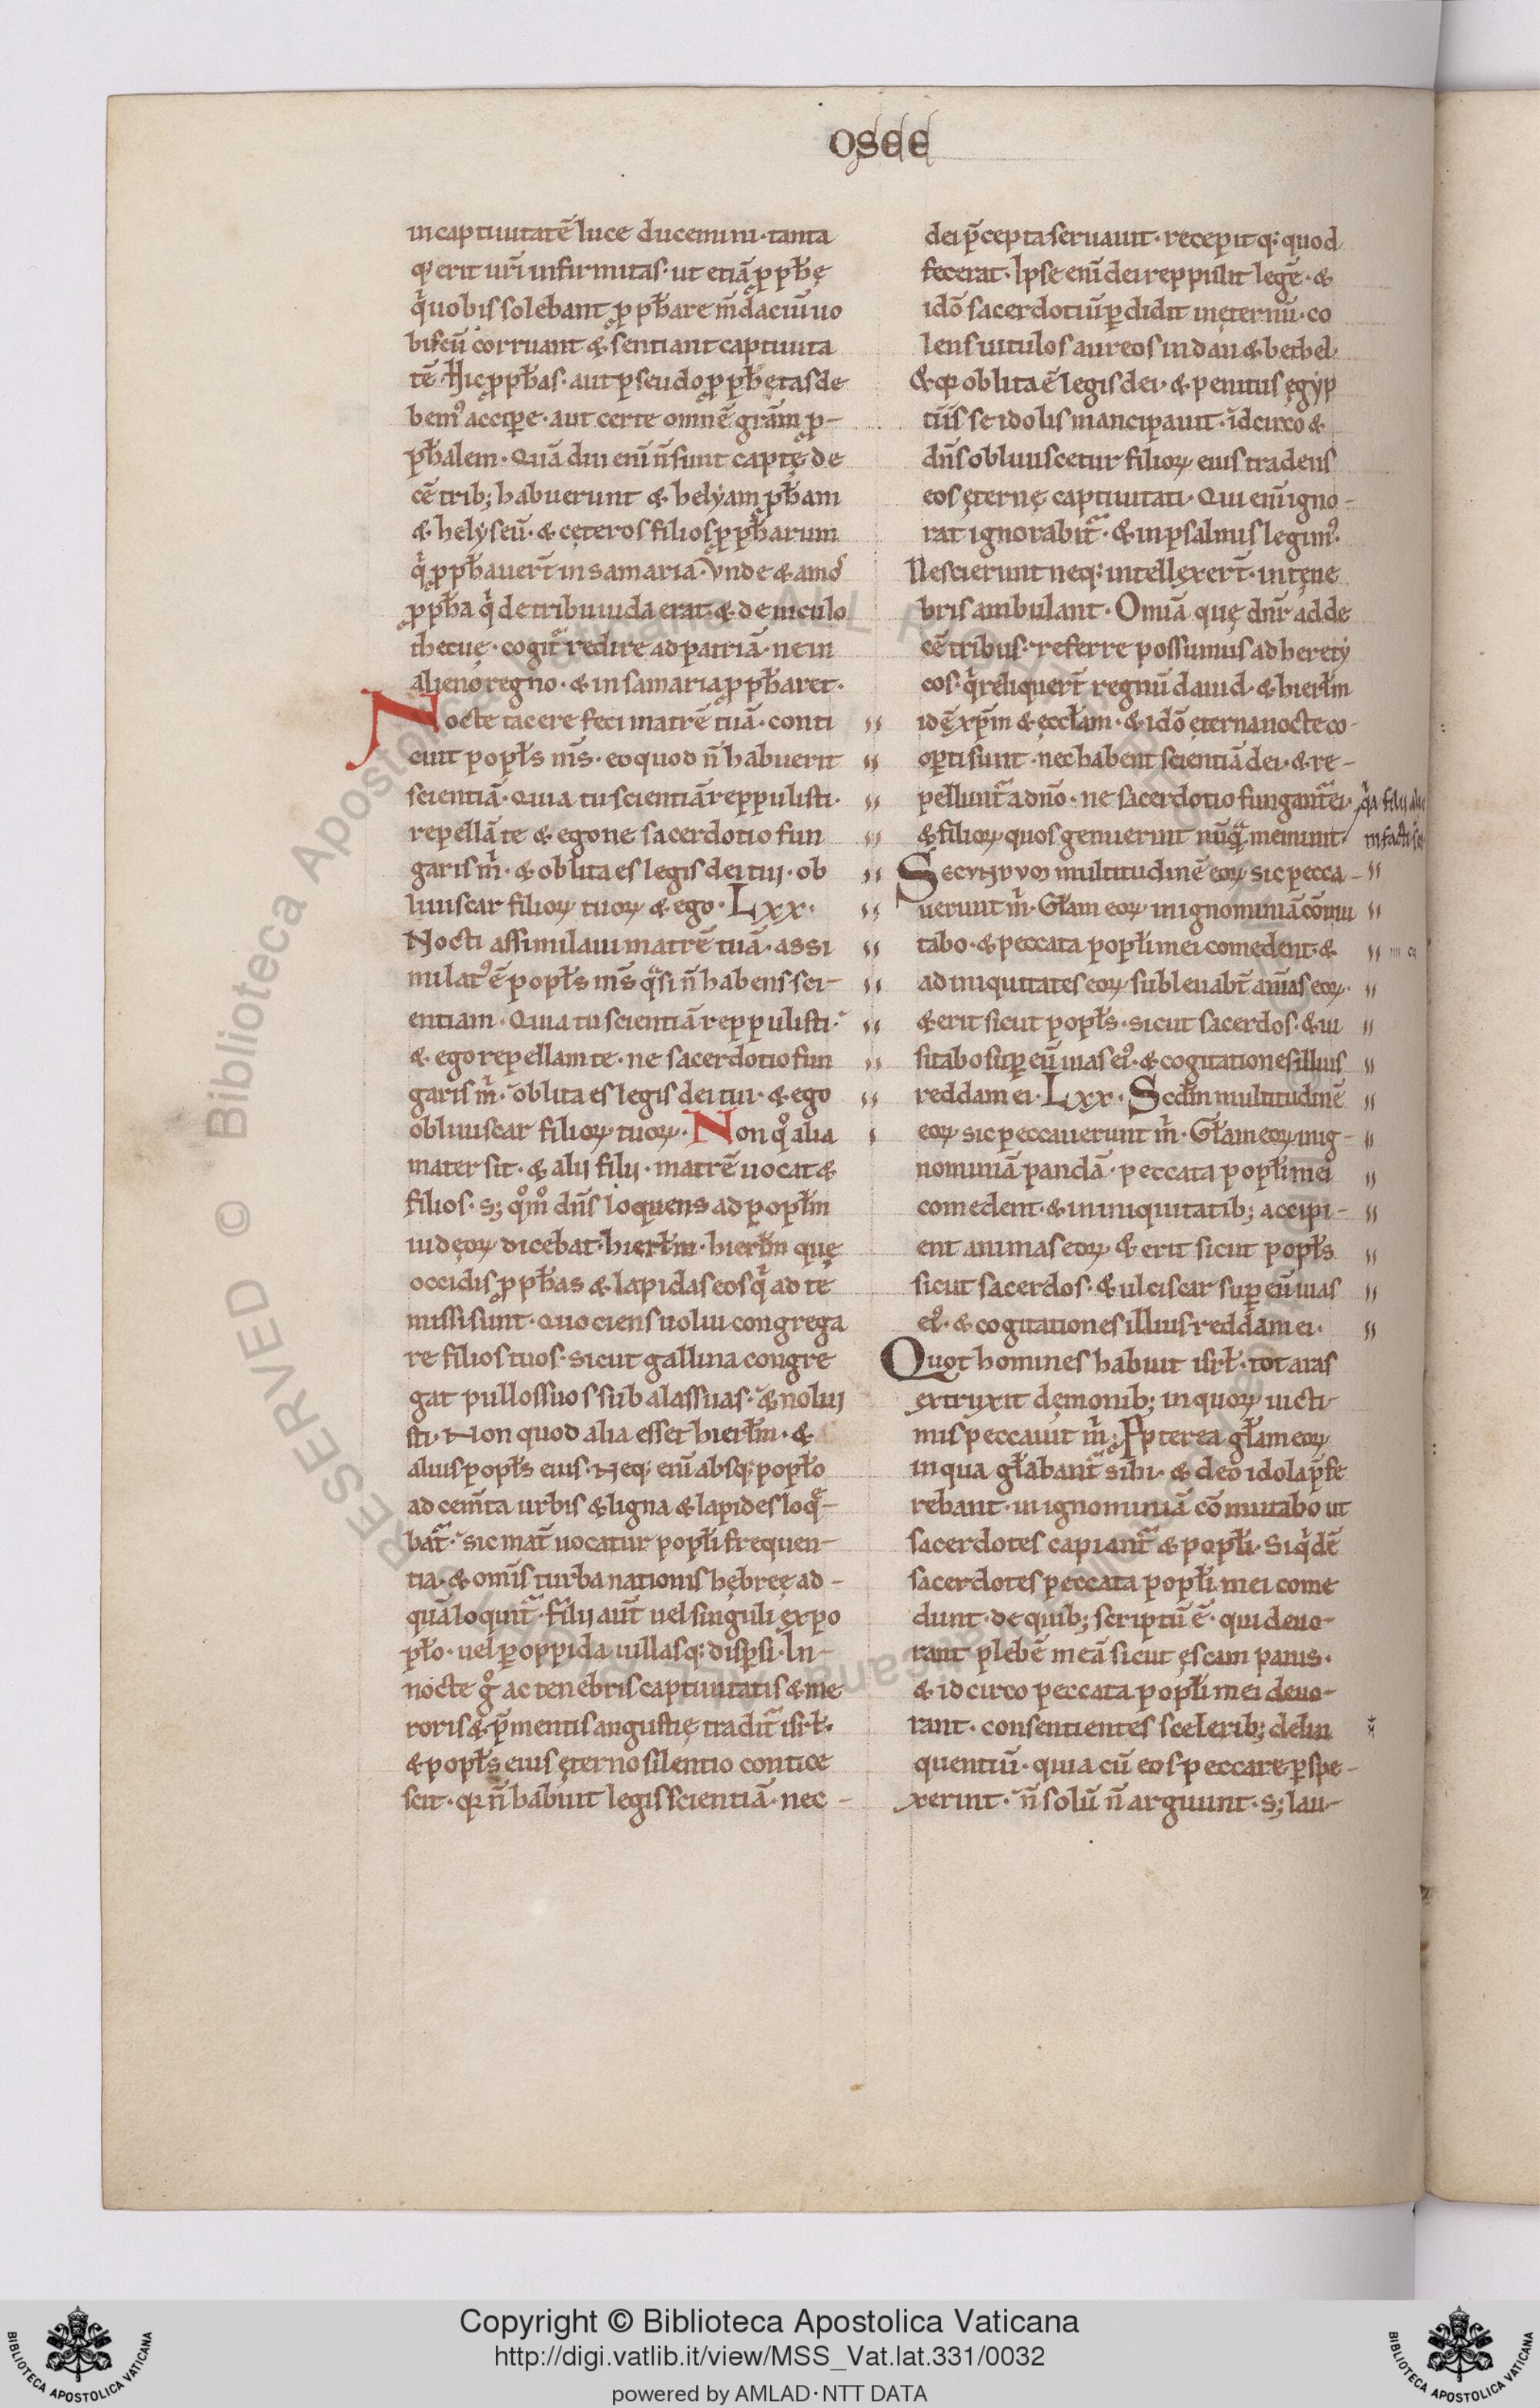 osee
in captiuitatē luce ducemini · tanta
q; erit urı̄ infirmitas · ut etiā ꝓph̄ę
qͥ uobis solebant ꝓph̄are m̄daciū uo
biscū corruant & sentiant captiuita
tē · Hic ꝓph̄as · aut pseudo ꝓph̄etas de
bemꝰ accipe · aut certe omnē grām ꝓ-
ph̄alem · Quā diu enı̄ n̄ sunt captę de
cē trib; habuerunt & helyam ꝓph̄am
& helyseū · & cęteros filios ꝓph̄arum
qͥ ꝓph̄auert̄ in samaria · Vnde & amos
ꝓph̄a qͥ de tribu iuda erat · & de uiculo
thecuę · cogitͣ redire ad patriā · ne in
alieno regno · & in samaria ꝓph̄aret ·
Nocte tacere feci matrē tuā · conti
cuit popłs m̄s · eo quod n̄ habuerit
scientiā · Quia tu scientiā reppulisti ·
repellā te & ego ne sacerdotio fun
garis mͥ · & oblita es legis dei tui · ob
liuiscar filioꝝ tuoꝝ & ego · Lxx ·
Nocti assimilaui matrē tuā · assi
milatꝰ ē popłs m̄s qͣsi n̄ habens sci-
entiam · Quia tu scientiā reppulisti ·
& ego repellam te · ne sacerdotio fun
garis mͥ · oblita es legis dei tui · & ego
obliuiscar filioꝝ tuoꝝ · Non qͦ alia
mater sit · & alij filij · matrē uocat &
filios · s; qͦmͦ dn̄s loquens ad popłm
iudęoꝝ dicebat · hierłm · hierłm quę
occidis ꝓph̄as & lapidas eos qͥ ad te
missi sunt · Quociens uolui congrega
re filios tuos · sicut gallina congre
gat pullos suos sub alas suas · & nolui
sti · Non quod alia esset hierłm · &
alius popłs eius · Neq; enı̄ absq; popło
ad cem̄ta urbis & ligna & lapides loqͣ-
batͣ · sic mat̄ uocatur popłi frequen-
tia · & omı̄s turba nationis hębreę ad-
quā loquitͣ · filij aut̄ uel singuli ex po
pło · uel ꝑ oppida uillasq; dispsi · In-
nocte gͦ ac tenebris captiuitatis & me
roris & p̄mentis angustię traditͣ isrł ·
& popłs eius ęterno silentio contice
scit · qꝛ n̄ habuit legis scientiā · nec-
dei p̄cepta seruauit · recepit q; quod
fecerat · Ipse enı̄ dei reppulit legē · &
idō sacerdotiū ꝑdidit in ęternū · co
lens uitulos aureos in dan & bethel ·
& qꝛ oblita ē legis dei · & penitus egyp
tiı̄s se idolis mancipauit · idcirco &
dn̄s obliuiscetur filioꝝ eius tradens
eos ęternę captiuitati · Qui enı̄ igno-
rat ignorabitͣ · & in psalmis legimꝰ ·
Nescierunt neq; intellexert̄ · in tene
bris ambulant · Omīa quę dn̄r ad de
cē tribus · referre possumus ad hereti
cos · qͥ reliquert̄ regnū dauid · & hierłm
id ē xp̄m & ęccłam · & idō ęterna nocte co-
opti sunt · nec habent scientiā dei · & re-
pelluntͣ a dnō · ne sacerdotio fungant̄ ei ·
& filioꝝ quos genuerint nūqͣ meminit
Secundum multitudinē eoꝝ sic pecca-
uerunt mͥ · Głam eoꝝ in ignominiā cōmu
tabo · & peccata popłi mei comedent · &
ad iniquitates eoꝝ subleuabt̄ anı̄as eoꝝ ·
& erit sicut popłs · sicut sacerdos · & ui
sitabo sup eū uias eiꝰ · & cogitationes illius
reddam ei · Lxx · Scdm̄ multitudinē
eoꝝ sic peccauerunt mͥ · Głam eoꝝ in ig-
nominiā pandā · peccata popłi mei
comedent · & in iniquitatib; accipi-
ent animas eoꝝ & erit sicut popłs
sicut sacerdos · & ulciscar sup eū uias
eiꝰ · & cogitationes illius reddam ei ·
Quot homines habuit isrł · tot aras
extruxit dęmonib; in quoꝝ uicti-
mis peccauit mͥ; Ꝓpterea głam eoꝝ
in qua głabantͣ sibi · & deo idola p̄fe
rebant · in ignominiā cōmutabo ut
sacerdotes capiantͣ & popłi · Siqͥdē
sacerdotes peccata popłi mei come
dunt · de quib; scriptū ē · qui deuo-
rant plebē meā sicut escam panis ·
& idcirco peccata popłi mei deuo-
rant · consentientes scelerib; delin
quentiū · quia cū eos peccare pspe-
xerint · n̄ solū n̄ arguunt · s; lau-
Copyright © Biblioteca Apostolica Vaticana
http://digi.vatlib.it/view/MSS_Vat.lat.331/0032
powered by AMLAD·NTT DATA
BIBLIOTECA APOSTOLICA VATICANA
BIBLIOTECA APOSTOLICA VATICANA